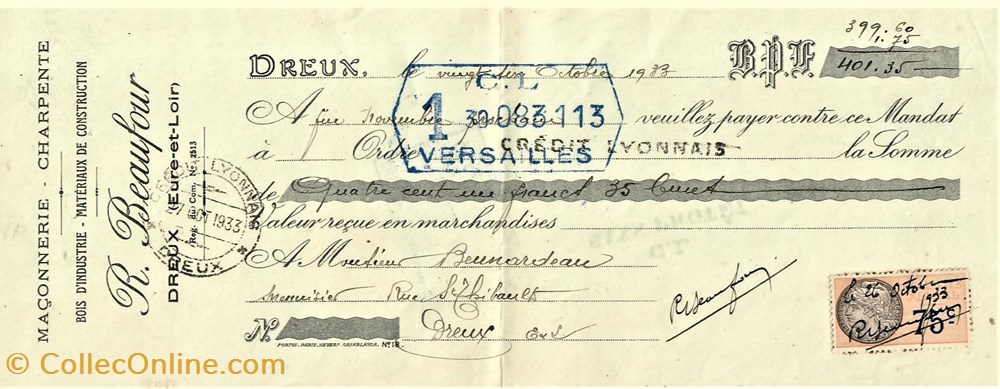 MAÇONNERIE - CHARPENTE
BOIS D'INDUSTRIE - MATÉRIAUX DE CONSTRUCTION
R. Beaufour
DREUX (Eure-et-Loir)
(Reg. du Com. No 2513
CREDIT LYONNAIS
1933
DREUX
399.60
1.75
DREUX, le vingt six Octobre 1933 B.P.F. 401.35
C.L.
1 30 083 113
VERSAILLES
A fin Novembre prochain veuillez payer contre ce Mandat
à l'Ordre CRÉDIT LYONNAIS la Somme
de Quatre cent un francs 35 Cmes
Valeur reçue en marchandises
A Monsieur Beunardeau
Menuisier Rue St Thibault
No Dreux E&L
R Beaufour
le 26 Octobre
1933
75c
R Beaufour
© CollecOnline.com